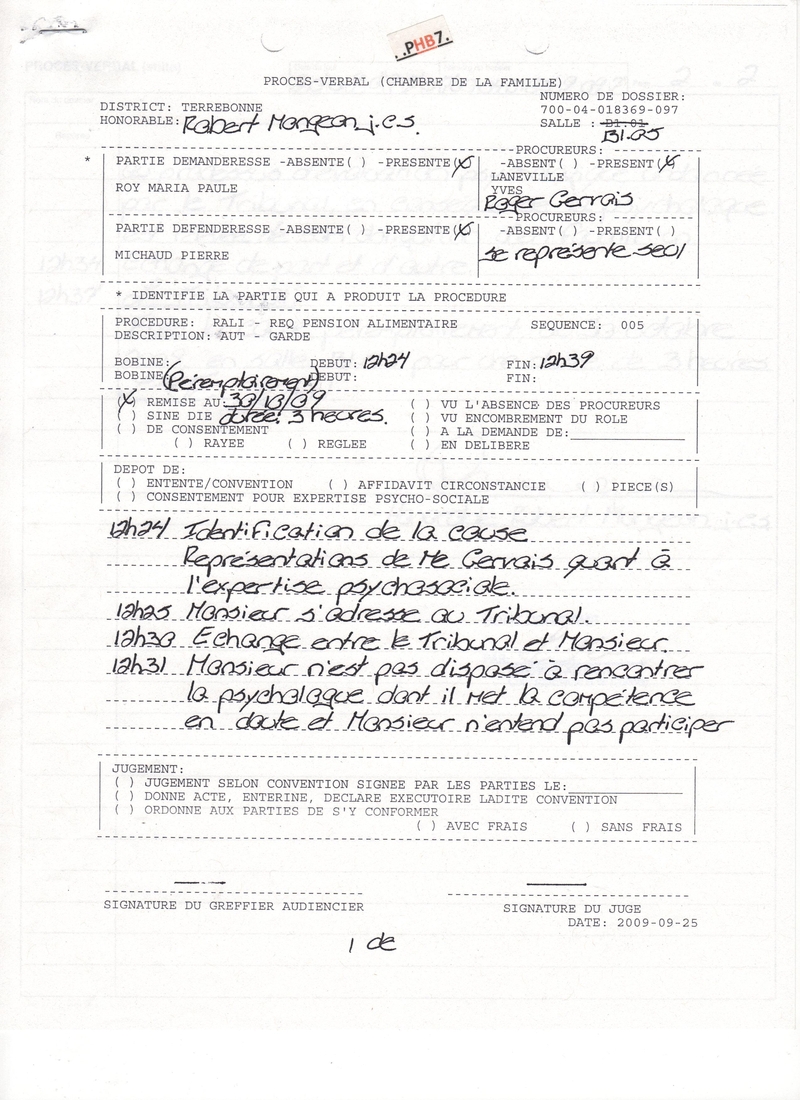 ..PHB7.
PROCES-VERBAL (CHAMBRE DE LA FAMILLE)
NUMERO DE DOSSIER:
DISTRICT: TERREBONNE
700-04-018369-097
HONORABLE: Robert Mongeon j.c.s.
SALLE : B1.01
B1.05
PROCUREURS:
* PARTIE DEMANDERESSE -ABSENTE( ) -PRESENTE(X) -ABSENT( ) -PRESENT(X)
LANEVILLE
ROY MARIA PAULE YVES
Roger Gervais
PROCUREURS:
PARTIE DEFENDERESSE -ABSENTE( ) -PRESENTE(X) -ABSENT( ) -PRESENT( )
MICHAUD PIERRE se représente seul
* IDENTIFIE LA PARTIE QUI A PRODUIT LA PROCEDURE
PROCEDURE: RALI - REQ PENSION ALIMENTAIRE SEQUENCE: 005
DESCRIPTION: AUT - GARDE
BOBINE: DEBUT: 12h24 FIN: 12h39
BOBINE: (Péremptoirement) DEBUT: FIN:
(X) REMISE AU: 30/10/09 ( ) VU L'ABSENCE DES PROCUREURS
( ) SINE DIE durée: 3 heures. ( ) VU ENCOMBREMENT DU ROLE
( ) DE CONSENTEMENT ( ) A LA DEMANDE DE:
( ) RAYEE ( ) REGLEE ( ) EN DELIBERE
DEPOT DE:
( ) ENTENTE/CONVENTION ( ) AFFIDAVIT CIRCONSTANCIE ( ) PIECE(S)
( ) CONSENTEMENT POUR EXPERTISE PSYCHO-SOCIALE
12h24 Identification de la cause
Représentations de Me Gervais quant à
l'expertise psychosociale.
12h25 Monsieur s'adresse au Tribunal.
12h30 Echange entre le Tribunal et Monsieur.
12h31 Monsieur n'est pas disposé à rencontrer
la psychologue dont il met la compétence
en doute et Monsieur n'entend pas participer
JUGEMENT:
( ) JUGEMENT SELON CONVENTION SIGNEE PAR LES PARTIES LE:
( ) DONNE ACTE, ENTERINE, DECLARE EXECUTOIRE LADITE CONVENTION
( ) ORDONNE AUX PARTIES DE S'Y CONFORMER
( ) AVEC FRAIS ( ) SANS FRAIS
SIGNATURE DU GREFFIER AUDIENCIER SIGNATURE DU JUGE
DATE: 2009-09-25
1 de